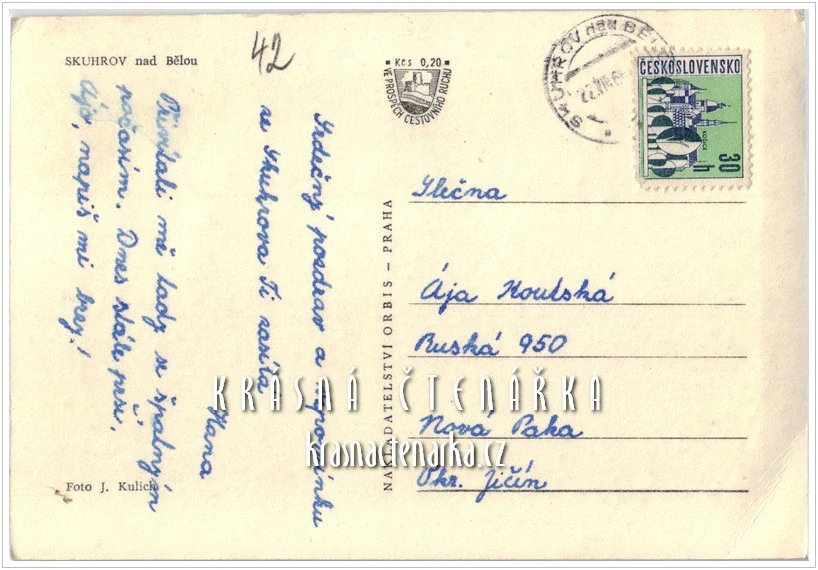 SKUHROV nad Bělou
42
Kčs 0,20
VE PROSPĚCH CESTOVNÍHO RUCHU
SKUHROV nad BĚL
22.VII.6
ČESKOSLOVENSKO
KOŠICE
30 h
Srdečný pozdrav a vzpomínku
ze Skuhrova Ti zasílá
Hana
Přivítali mě tady se špatným
počasím. Dnes stále prší.
Ájo, napiš mi brzy!
Foto J. Kulich
NAKLADATELSTVÍ ORBIS – PRAHA
Slečna
Ája Koutská
Ruská 950
Nová Paka
Okr. Jičín
KRÁSNÁ ČTENÁŘKA
krasnactenarka.cz